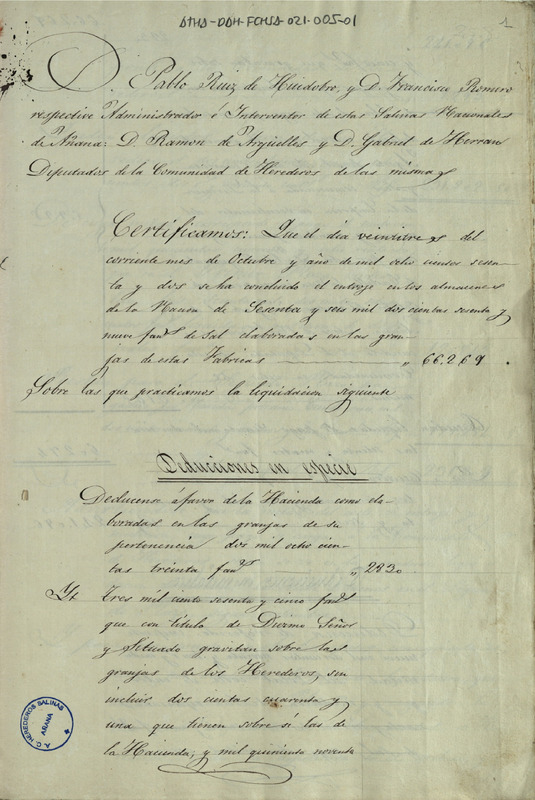 ATHA-DAH-FCHSA-021-005-01
1
D. Pablo Ruiz de Huidobro, y D. Francisco Romero
respective Administrador é Interventor de estas Salinas Nacionales
de Añana: D. Ramon de Argüelles y D. Gabriel de Herran
Diputados de la Comunidad de Herederos de las mismas
Certificamos: Que el dia veintitres del
corriente mes de Octubre y año de mil ocho cientos sesen-
ta y dos se ha concluido el entroje en los almacenes
de la Nacion de Sesenta y seis mil dos cientas sesenta y
nueve fan.s de sal elaboradas en las gran-
jas de estas Fabricas " 66.269.
Sobre las que practicamos la liquidacion siguiente
Deducciones en especie
Deducense á favor de la Hacienda como ela-
boradas en las granjas de su
pertenencia dos mil ocho cien-
tas treinta fan.s " 2830
Yt tres mil ciento sesenta y cinco fan.s
que con titulo de Divino Señor
y Situado gravitan sobre las
granjas de los Herederos, sin
incluir dos cientas cuarenta y
una que tienen sobre sí las de
la Hacienda; y mil quinientas noventa
A.C. HEREDEROS SALINAS
AÑANA